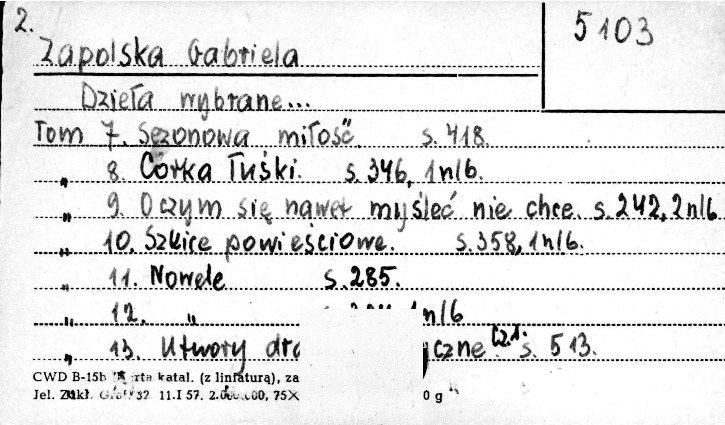 2.
5103
Zapolska Gabriela
Dzieła wybrane...
Tom 7. Sezonowa miłość. s. 418.
„ 8. Córka Tuśki. s. 346, 1 nlb.
„ 9. O czym się nawet myśleć nie chce. s. 242, 2 nlb.
„ 10. Szkice powieściowe. s. 358, 1 nlb.
„ 11. Nowele s. 285.
„ 12. „ 1 nlb
„ 13. Utwory yczne. Cz. 1. s. 513.
CWD B-15b karta katal. (z liniaturą), za
Jel. Zakł. Graf. 32. 11.I 57. 2.000.000, 75X 0 g